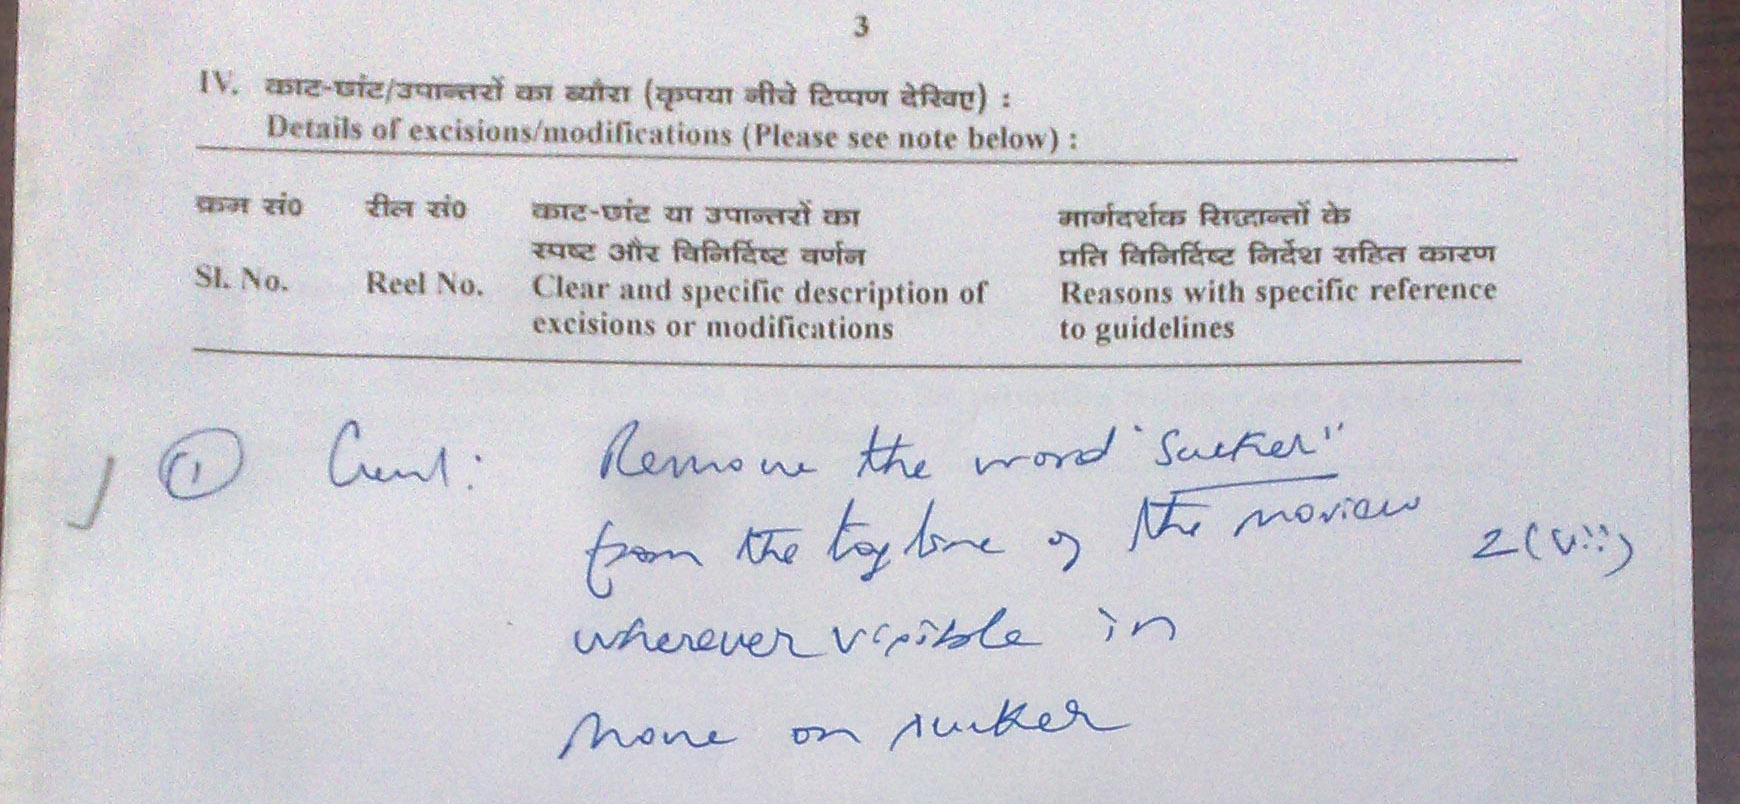 3
IV. काट-छांट/उपान्तरों का ब्यौरा (कृपया नीचे टिप्पण देखिए) :
Details of excisions/modifications (Please see note below) :
क्रम सं० रील सं० काट-छांट या उपान्तरों का मार्गदर्शक सिद्धान्तों के
स्पष्ट और विनिर्दिष्ट वर्णन प्रति विनिर्दिष्ट निर्देश सहित कारण
Sl. No. Reel No. Clear and specific description of Reasons with specific reference
excisions or modifications to guidelines
1 Remove the word "Sucker"
from the tag line of the 2(vii)
wherever visible in
move on sucker